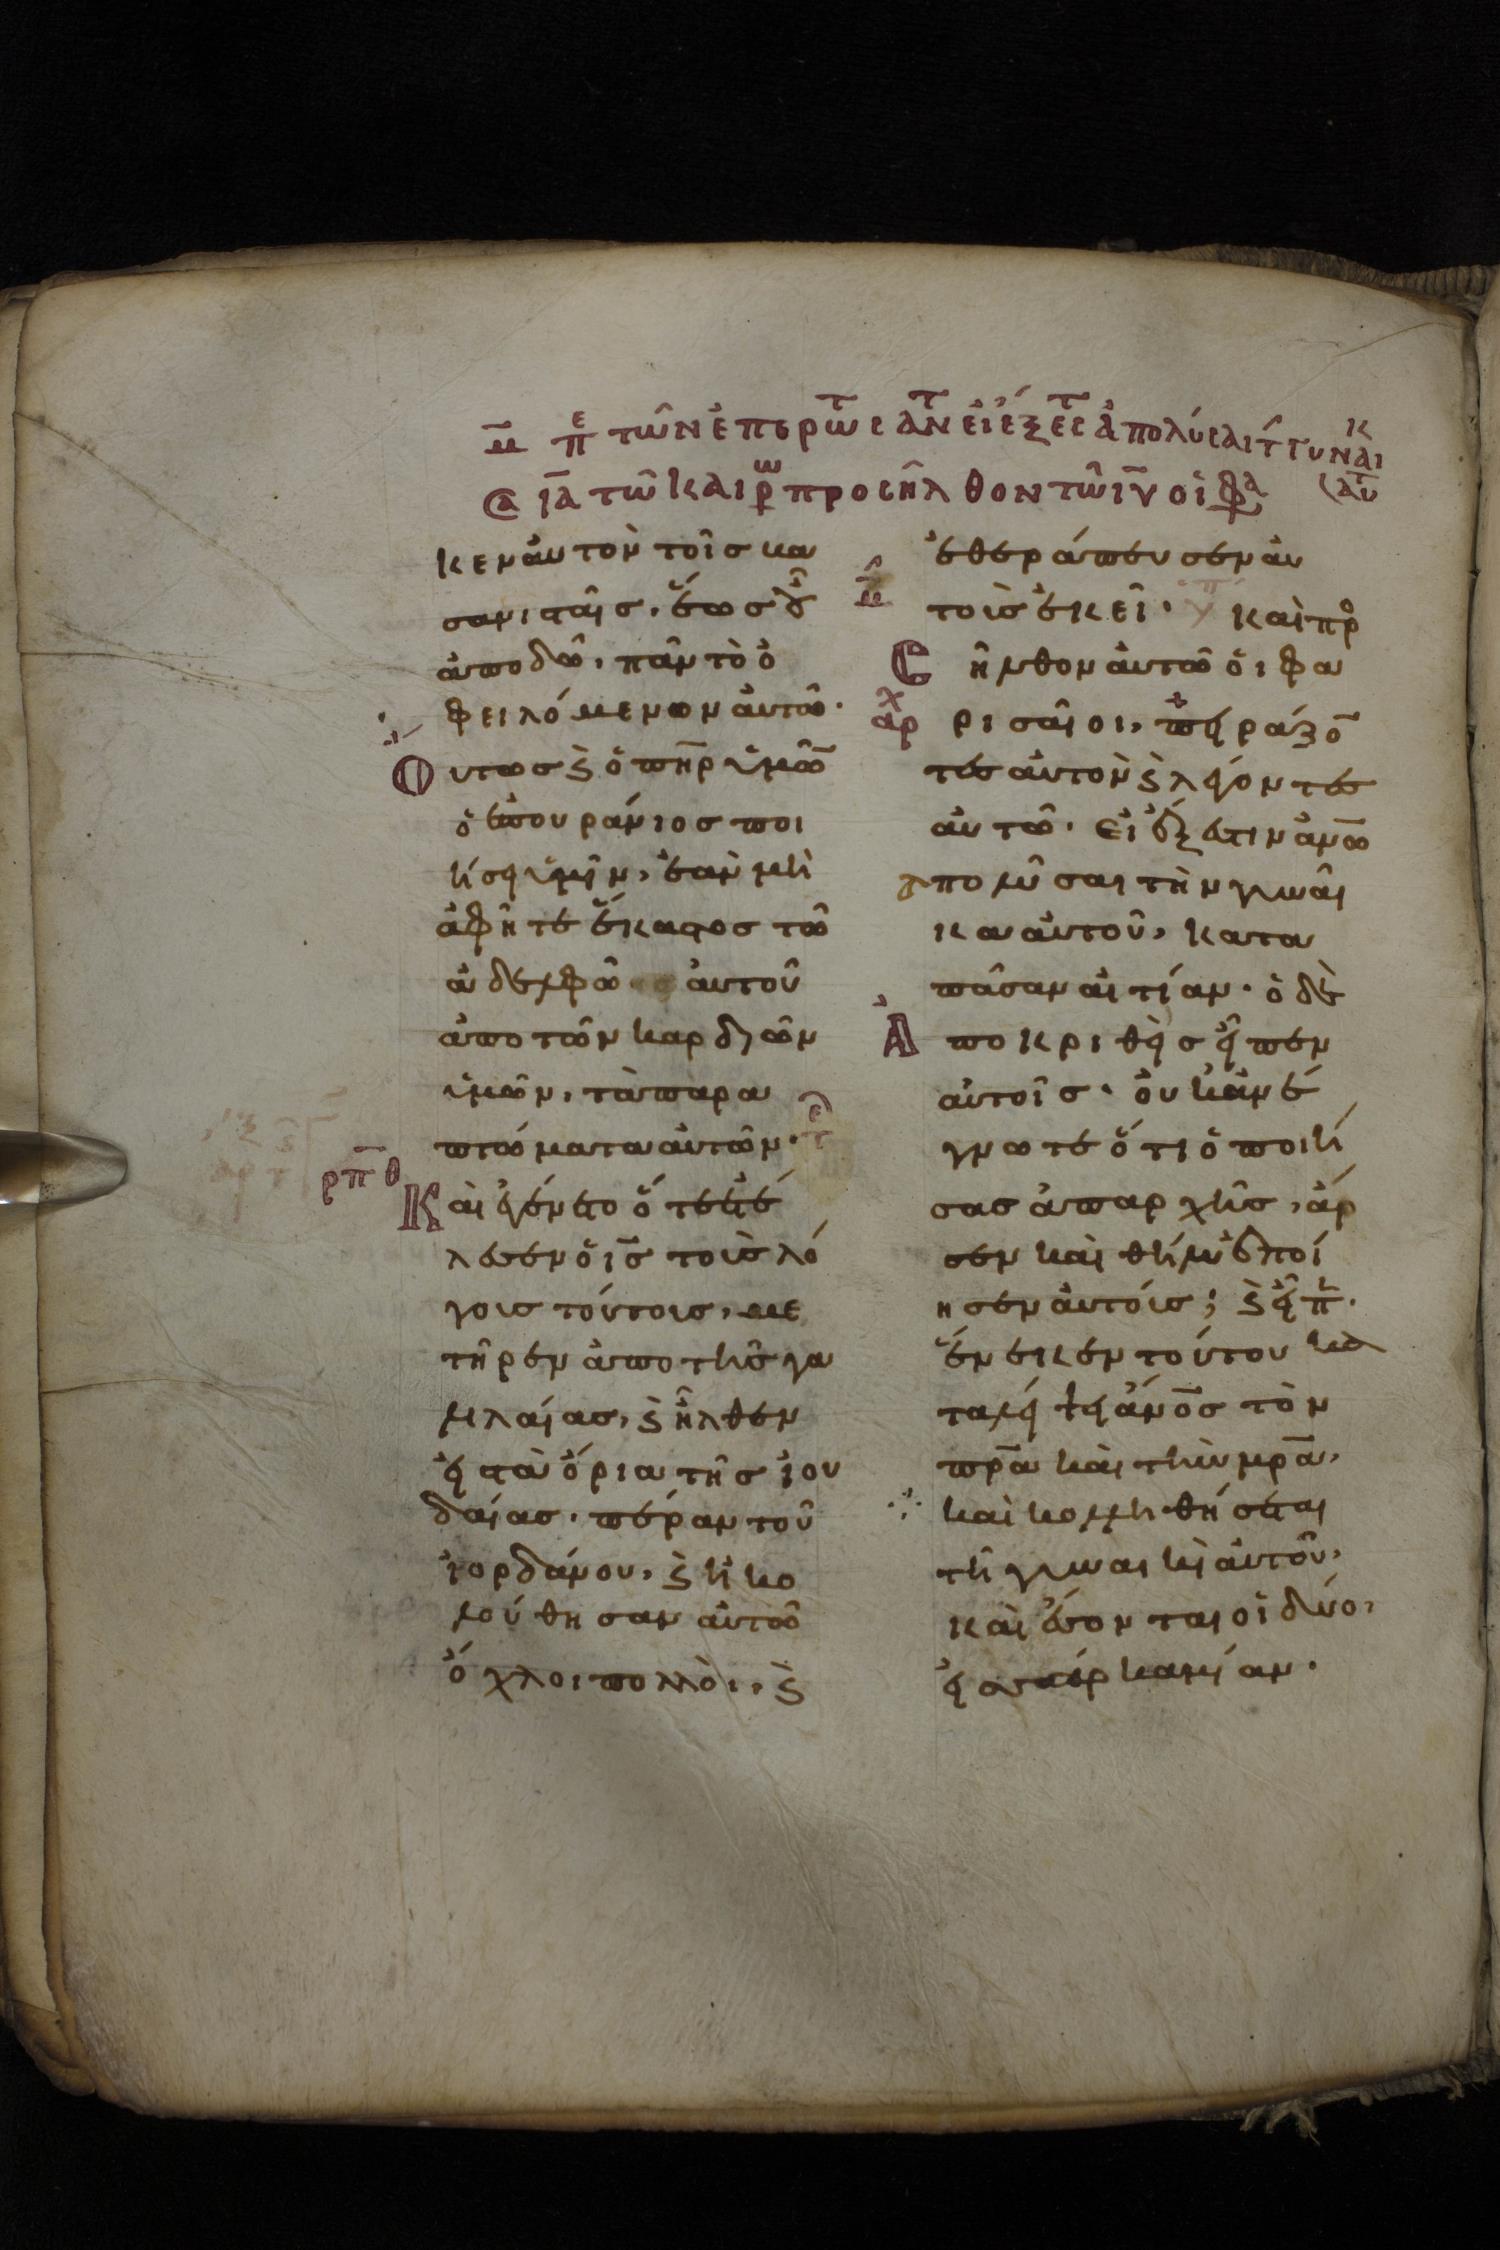 μ̅ πε τῶν ἐπερωτ ε ἀντ εἰ ἔξεστ ἀπολύσαι τ γυναικ
ϵα ια τῶ καιρω προσῆλθον τῶ ιυ οἱ φα αυτ
κεν αὐτὸν τοῖς βα
σανισταῖς. ἕως οὗ
ἀποδῶ, πᾶν τὸ ὀ
φειλόμενων αὐτῶ.
Ουτως ϗ ὁ πη̅ρ ὑμῶ̅
ὁ ἐπουράνιος ποι
ήσει ὑμῖν, ἐὰν μὴ
ἀφῆτε ἕκαστος τῶ
ἀδελφῶ αὐτοῦ
ἀπο τῶν καρδιῶν
ὑμῶν, τὰ παρα
πτώματα αὐτῶν.
ρπ̅θ Καὶ ἐγένετο ὅτε ἐτέ
λεσεν ὁ ι̅ς τοὺς λό
γους τούτους, με
τῆρεν ἀπο τῆς γα
λιλαίας, ϗ ἦλθεν
εἰς τὰ ὅρια τῆς ἰου
δαίας. πέραν τοῦ
ἰορδάνου, ϗ ἠκο
λούθησαν αὐτῶ
ὄχλοι πολλοὶ, ϗ
ἐθεράπευσεν αὐ
τοὺς ἐκεῖ. καὶ προ
σ ῆλθον αὐτῶ οἱ φα
αρχ ρισαῖοι, πειράζο̅
τες αὐτὸν ϗ λέγοντες
αὐτῶ. εἰ ἔξεστιν ἀνω̅
ἀπολῦσαι τὴν γυναῖ
κα αὐτοῦ, κατα
πᾶσαν αἰτίαν. ὁ δὲ
Ἀποκριθεὶς εἶπεν
αὐτοῖς. οὐκ ἀνέ
γνωτε ὅτι ὁ ποιή
σας ἀπαρχῆς, ἄρ
σεν καὶ θῆλυ ἐποί
ησεν αὐτοὺς; ϗ εἶπ.
ἕνεκεν τούτου κα
ταλείψει ἄνο̅ς τὸν
πρ̅α καὶ τὴν μρ̅α,
καὶ κολληθήσεται
τῆ γυναικὶ αὐτοῦ,
καὶ ἔσονται οἱ δύο,
εἰς σάρκα μίαν.